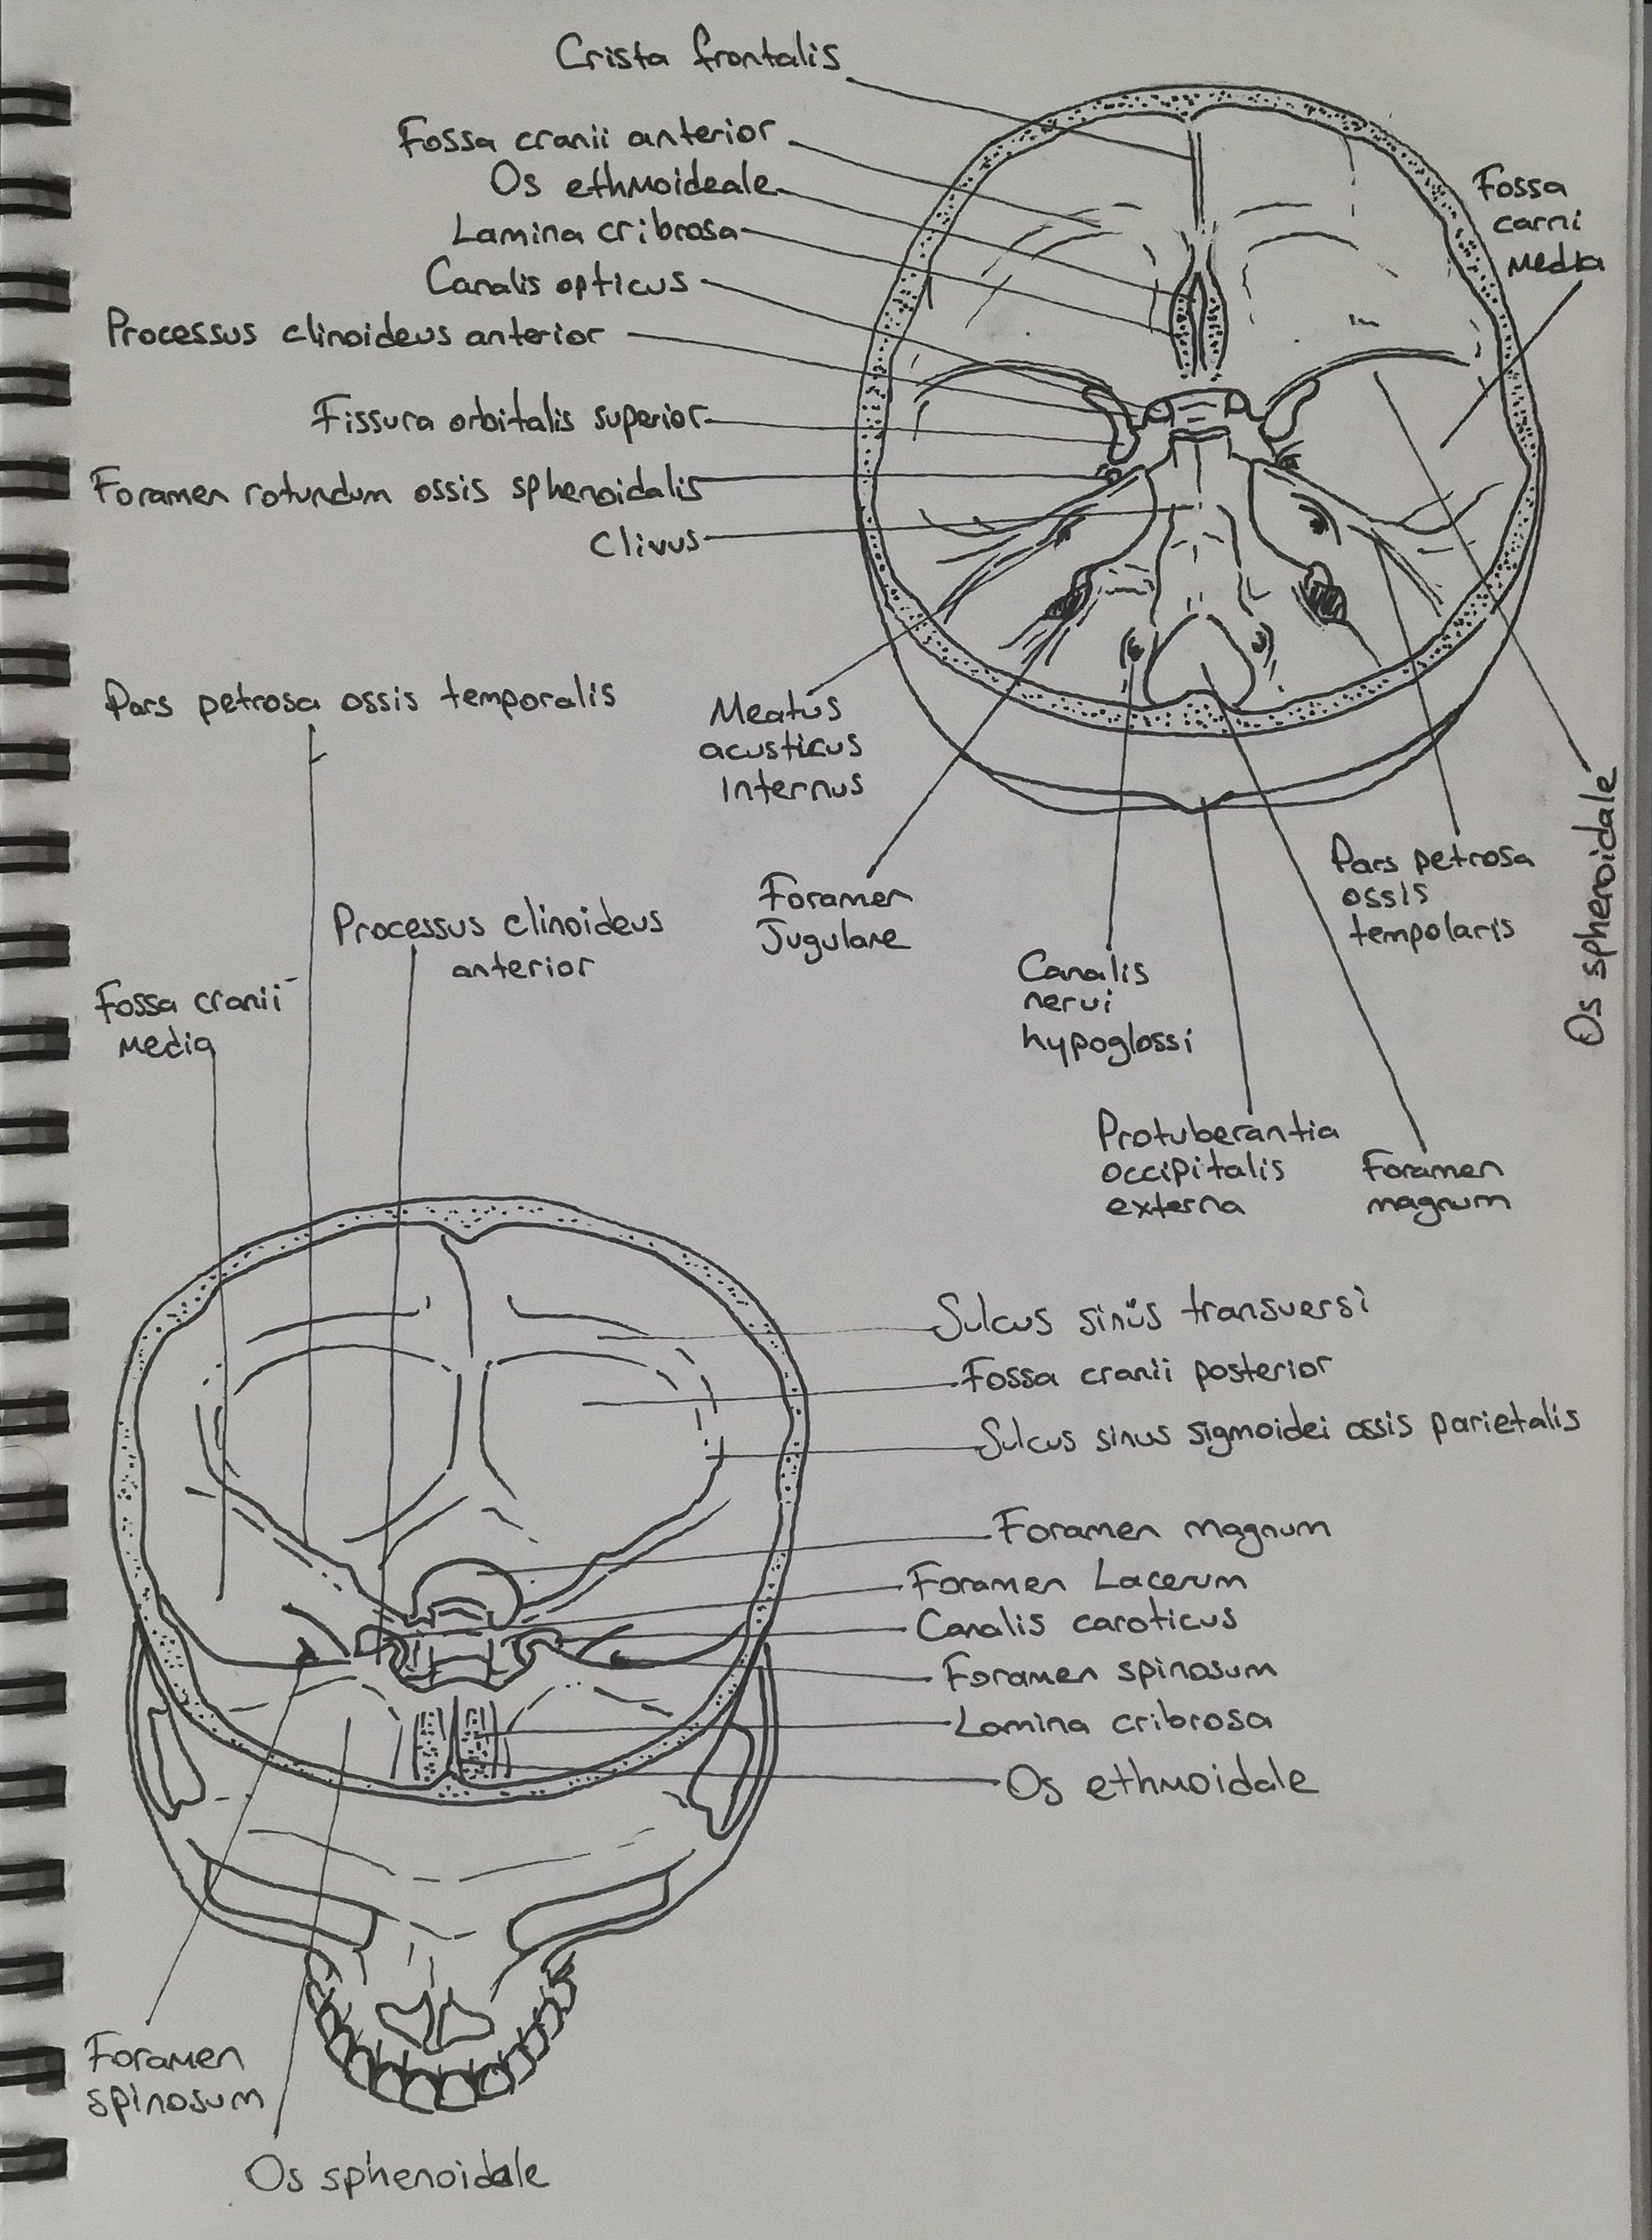 Crista frontalis
Fossa cranii anterior
Os ethmoideale
Lamina cribrosa
Canalis opticus
Processus clinoideus anterior
Fissura orbitalis superior
Foramen rotundum ossis sphenoidalis
Clivus
Fossa
carni
media
Pars petrosa ossis temporalis
Meatus
acusticus
internus
Foramen
Jugulare
Canalis
nervi
hypoglossi
Protuberantia
occipitalis
externa
Foramen
magnum
Pars petrosa
ossis
tempolaris
Os sphenoidale
Processus clinoideus
anterior
Fossa cranii
media
Sulcus sinüs transversi
Fossa cranii posterior
Sulcus sinus sigmoidei ossis parietalis
Foramen magnum
Foramen Lacerum
Canalis caroticus
Foramen spinosum
Lamina cribrosa
Os ethmoidale
Foramen
spinosum
Os sphenoidale